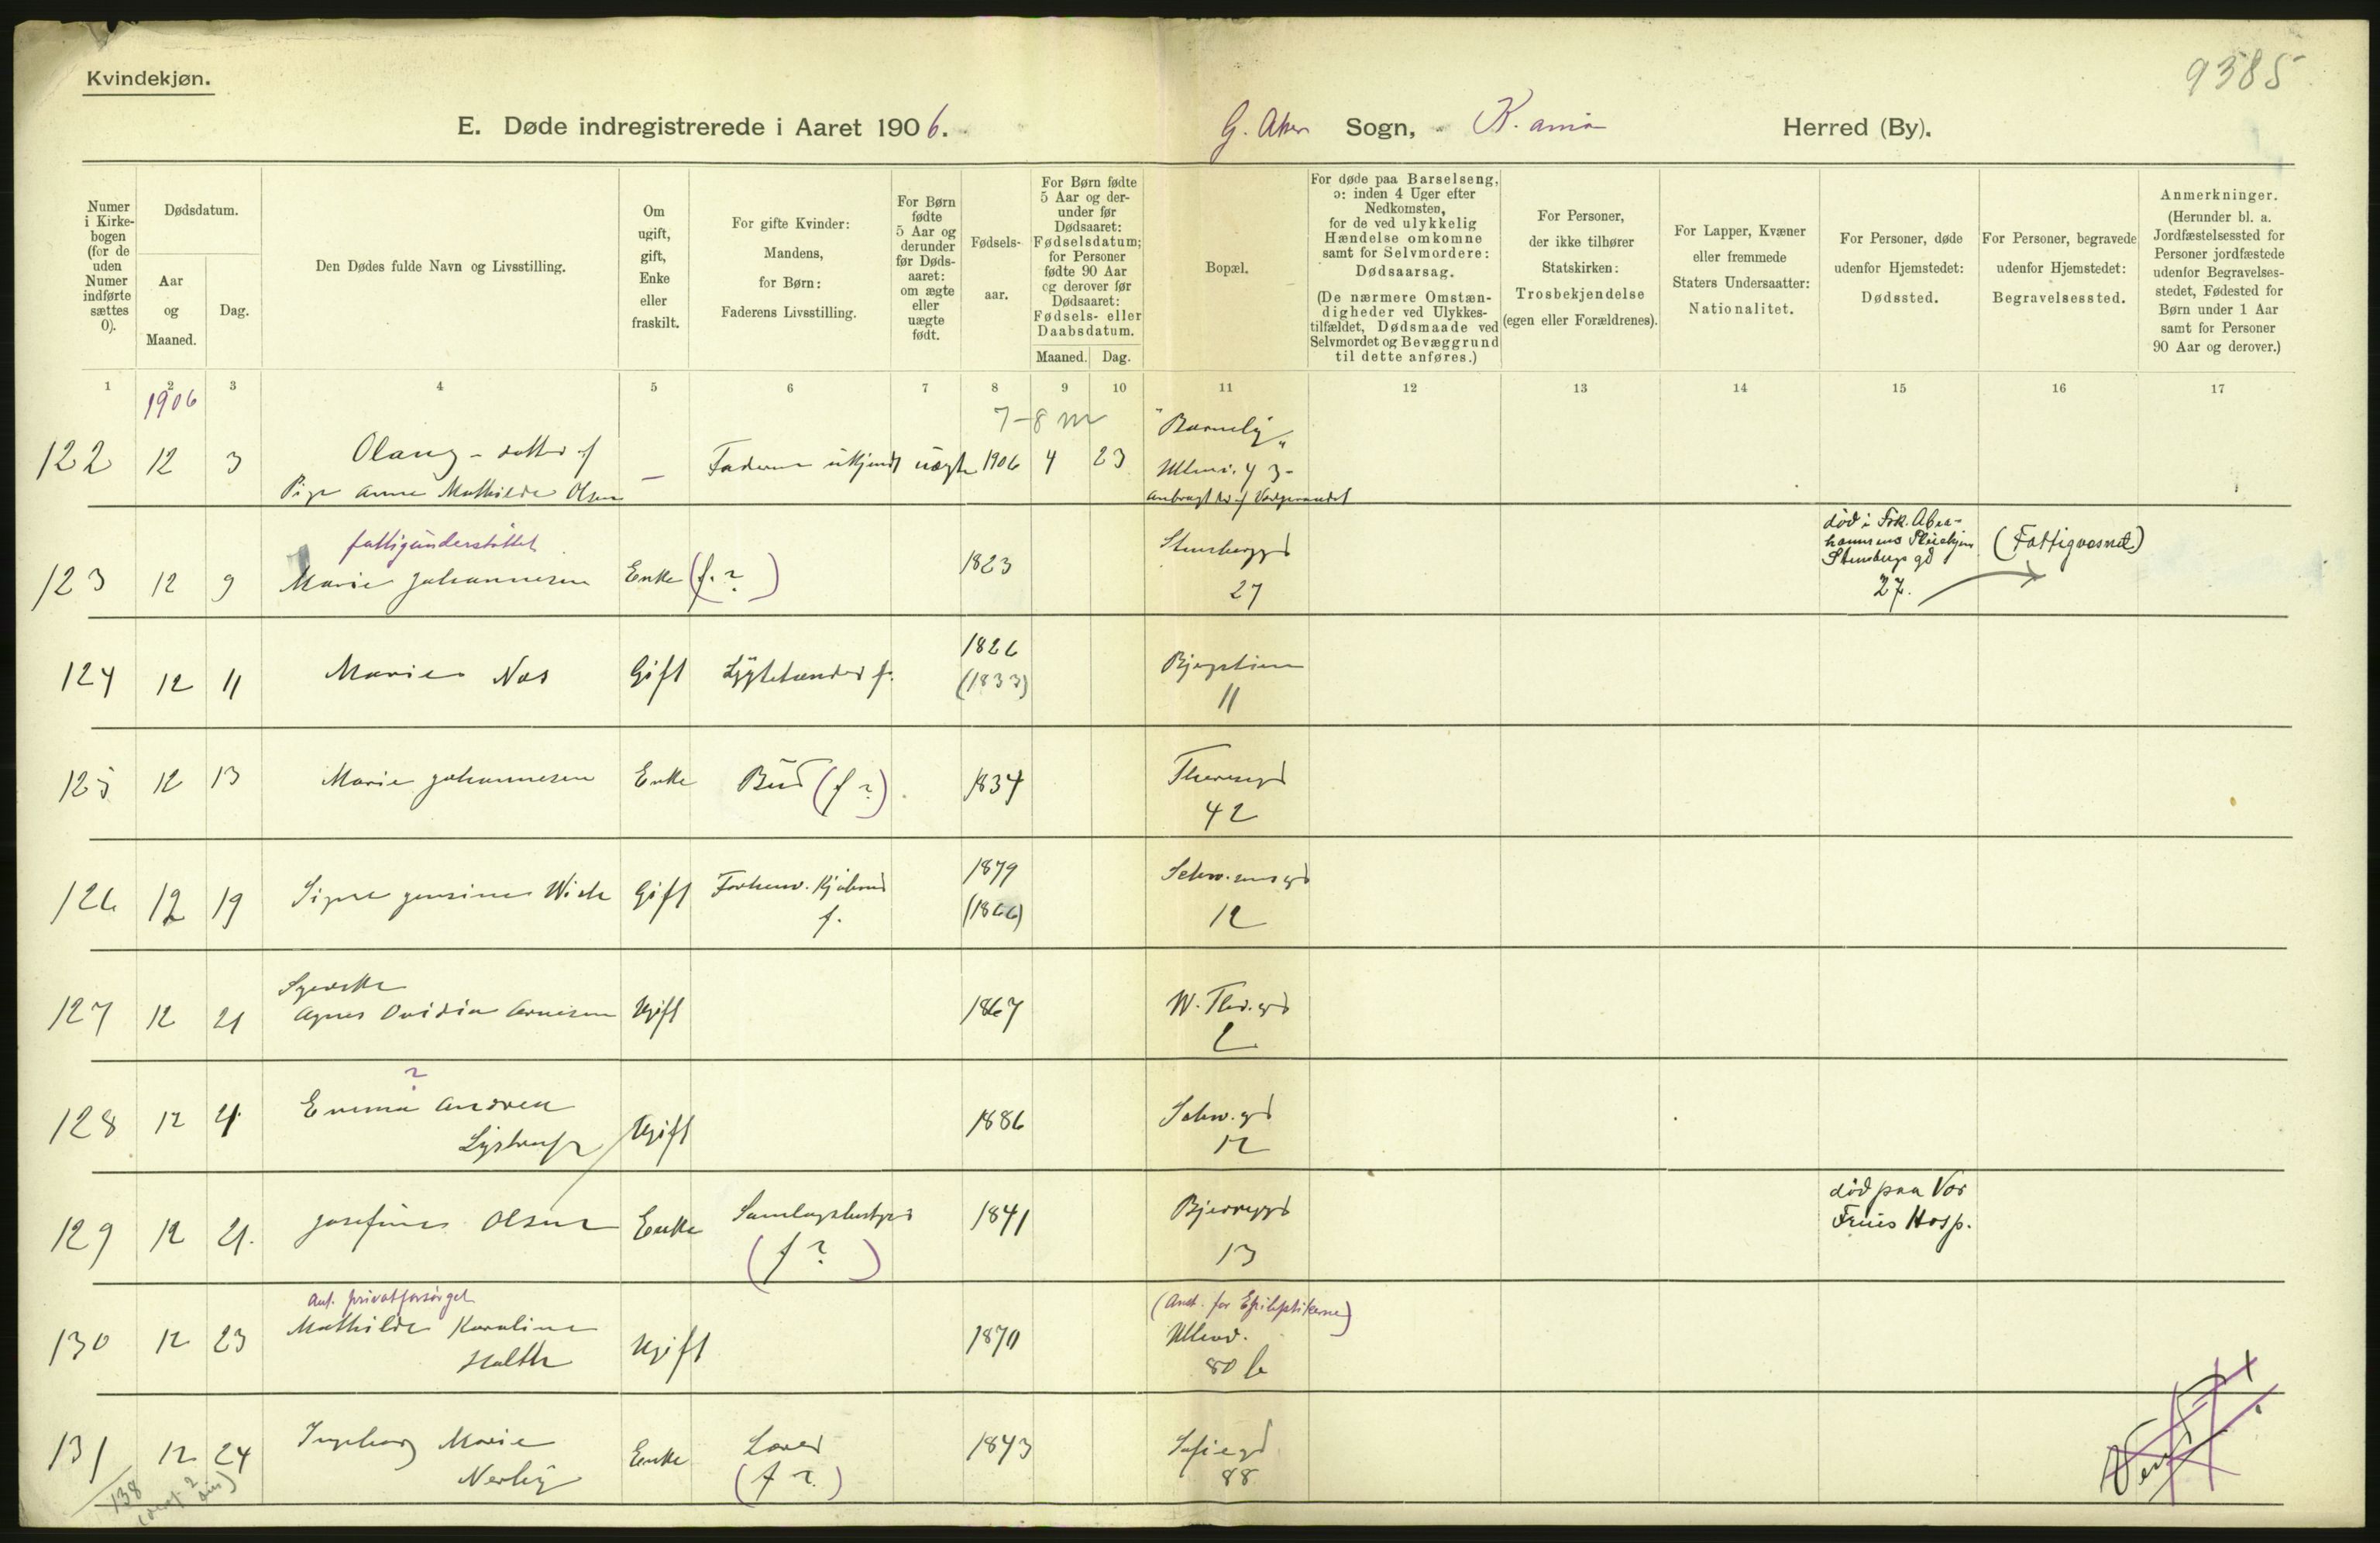 Kvindekjøn.
9385
E. Døde indregistrerede i Aaret 1906.
G. Aker Sogn, K.ania Herred (By).
Numer
i Kirke-
bogen
(for de
uden
Numer
indførte
sættes
0).
Dødsdatum.
Aar
og
Maaned.
Dag.
Den Dødes fulde Navn og Livsstilling.
Om
ugift,
gift,
Enke
eller
fraskilt.
For gifte Kvinder:
Mandens,
for Børn:
Faderens Livsstilling.
For Børn
fødte
5 Aar og
derunder
før Døds-
aaret:
om ægte
eller
uægte
født.
Fødsels-
aar.
For Børn fødte
5 Aar og der-
under før
Dødsaaret:
Fødselsdatum;
for Personer
fødte 90 Aar
og derover før
Dødsaaret:
Fødsels- eller
Daabsdatum.
Maaned. Dag.
Bopæl.
For døde paa Barselseng,
ɔ: inden 4 Uger efter
Nedkomsten,
for de ved ulykkelig
Hændelse omkomne
samt for Selvmordere:
Dødsaarsag.
(De nærmere Omstæn-
digheder ved Ulykkes-
tilfældet, Dødsmaade ved
Selvmordet og Bevæggrund
til dette anføres.)
For Personer,
der ikke tilhører
Statskirken:
Trosbekjendelse
(egen eller Forældrenes).
For Lapper, Kvæner
eller fremmede
Staters Undersaatter:
Nationalitet.
For Personer, døde
udenfor Hjemstedet:
Dødssted.
For Personer, begravede
udenfor Hjemstedet:
Begravelsessted.
Anmerkninger.
(Herunder bl. a.
Jordfæstelsessted for
Personer jordfæstede
udenfor Begravelses-
stedet, Fødested for
Børn under 1 Aar
samt for Personer
90 Aar og derover.)
1 2 3 4 5 6 7 8 9 10 11 12 13 14 15 16 17
1906
7-8 m
122 12 3 Olaug - datter af — Faderen ukjendt uægte 1906 4 23
Pige Anna Mathilde Olsen
fattigunderstøttet
123 12 9 Marie Johannesen Enke (f. ?) 1823 Stensberggd
27
død i Frk. Abra-
hamsens Pleiehjem
Stensberg gd
27.
(Fattigvæsnet)
124 12 11 Marie Nas Gift Lygtetænder f. 1826
(1833)
11
125 12 13 Marie Johannesen Enke Bud (f ?) 1834 Theresegd
42
126 12 19 Signe Jensine Gift f. 1879
(1866)
12
Syerske
127 12 21 Agnes Ovidia Arnesen Ugift 1867 W. Thr. gd
2
?
128 12 21 Emma Andrea Ugift 1886 Schw. gd
12
129 12 21. Josefine Olsen Enke (f ?) 1841 Bjerreggd
13
død paa Vor
Frues Hosp.
Ant. privatforsørget
130 12 23 Mathilde Karoline
Holth Ugift 1870
(Anst. for Epileptikerne)
Ullevv.
80 b
131 12 24 Ingeborg Marie
Nerby Enke (f ?) 1843 Sofiegd
88
138